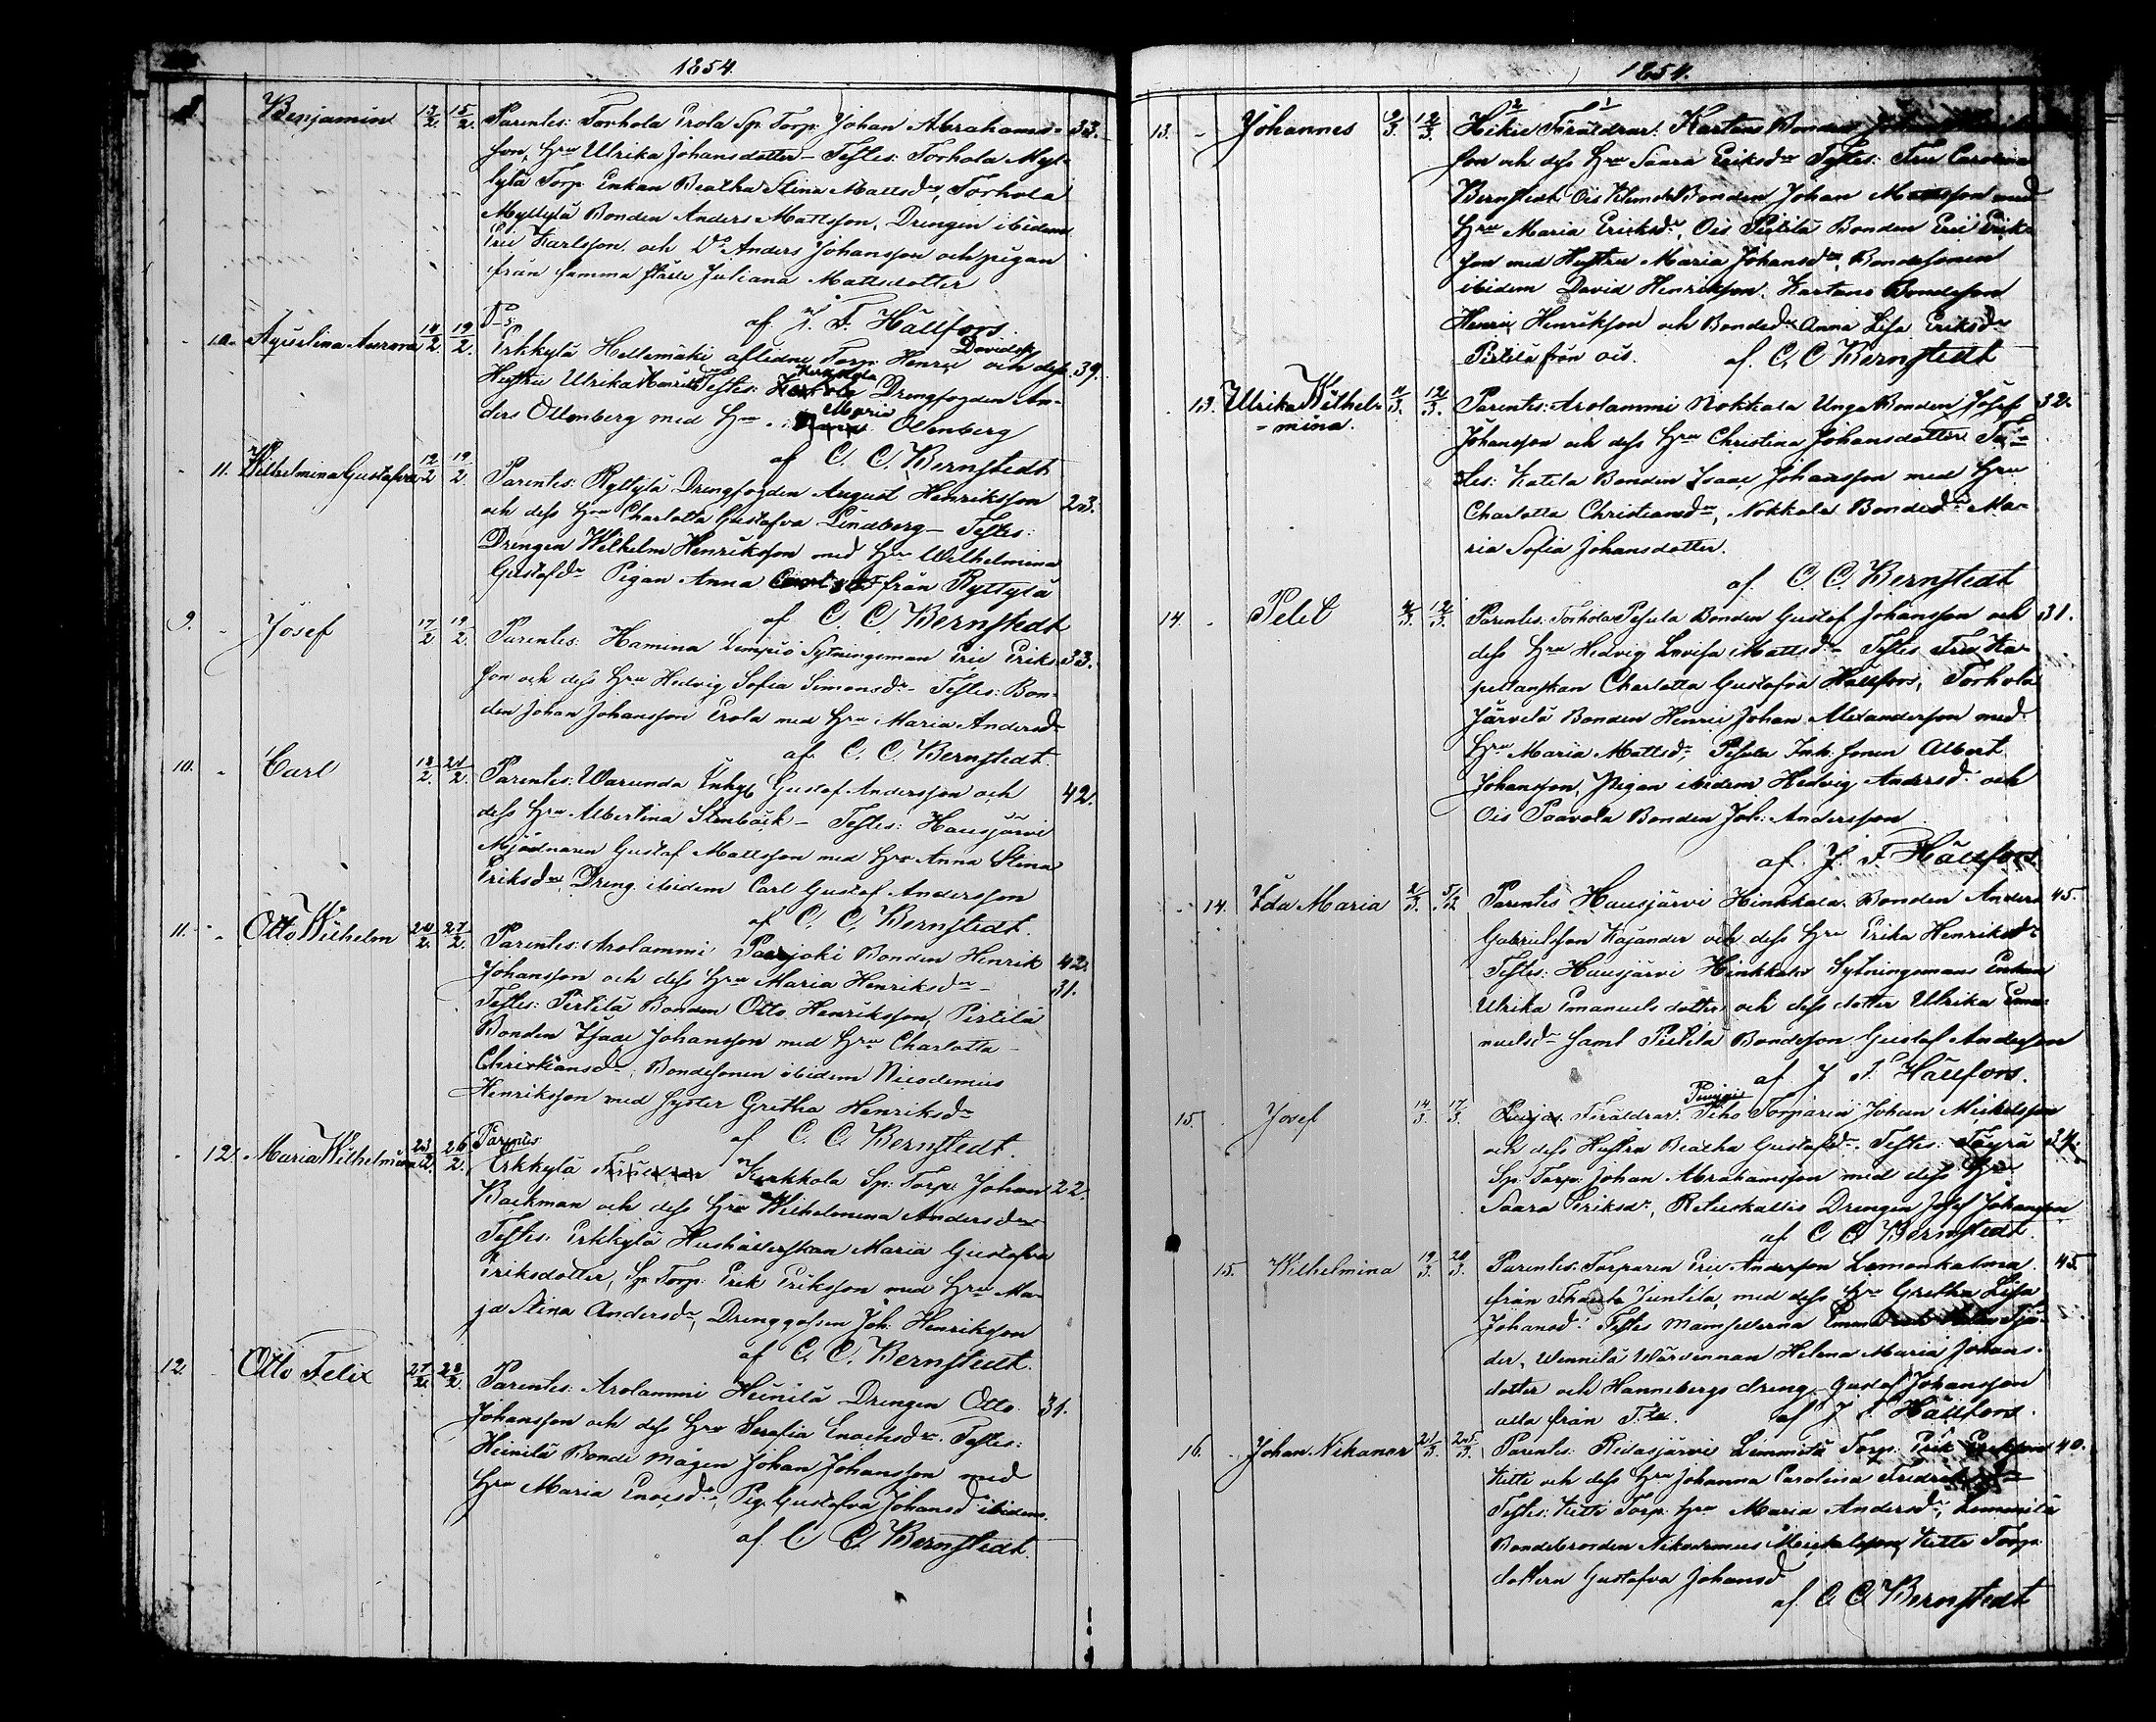 1854.
8. Benjamin 13/2. 15/2. Parentes: Torhola Erola Sp. Torp. Johan Abrahams- 33.
son, Hru Ulrika Johansdotter – Testes: Torhola Myl-
lylä Torp. Enkan Beatha Stina Mattsdr, Torhola
Myllylä Bonden Anders Mattsson, Drengen ibidem
Eric Karlsson och Do Anders Johansson och pigan
från samma ställe Juliana Mattsdotter
af J. F. Hällfors.
10. Aurora 14/2. 19/2. Erkkylä Hellemäki aflidne Torp: Henric Davidss: och dess 39.
Hustru Ulrika Testes: Kurkkola Drengfogden An-
ders Ollenberg med Hru Maria Ollenberg
af C. C. Bernstedt
11. Wilhelmina Gustafva 12/2 19/2. Parentes: Ryttylä Drengfogden August Henriksson 23.
och dess Hru Charlotta Gustafva Lindberg – Testes:
Drengen Wilhelm Henriksson med Hru Wilhelmina
Gustafdr Pigan Anna från Ryttylä
af C. C. Bernstedt
9. Josef 17/2 19/2. Parentes: Hamina Lempiö Sytningsman Eric Eriks- 33.
son och dess Hru Hedvig Sofia Simonsdr – Testes: Bon-
den Johan Johansson Erola med Hru Maria Andersdr
af C. C. Bernstedt.
10. Carl 18/2. 21/2. Parentes: Warunda Inhys Gustaf Andersson och 42.
dess Hru Albertina Stenbäck – Testes: Hausjärvi
Mjödnaren Gustaf Mattsson med Hru Anna Stina
Eriksdr, Dreng ibidem Carl Gustaf Andersson
af C. C. Bernstedt.
11. Otto Wilhelm 20/2. 27/2. Parentes: Arolammi Bonden Henrik 42.
Johansson och dess Hru Maria Henriksdr – 31.
Testes: Pertilä Bonden Otto Henriksson, Pertilä
Bonden Isaac Johansson med Hru Charlotta
Christiansdr, Bondesonen ibidem Nicodemus
Henriksson med syster Gretha Henriksdr
af C. C. Bernstedt.
12. Maria Wilhelmina 23/2. 26/2. Parentes:
Erkkylä Kurkkola Sp: Torp: Johan 22.
Backman och dess Hru Wilhelmina Andersdr
Testes: Erkkylä Hushållerskan Maria Gustafva
Eriksdotter, Sp: Torp: Erik Eriksson med Hru Ma-
ja Stina Andersdr, Drenggossen Joh: Henriksson
af C. C. Bernstedt.
12. Otto Felix 27/2. 28/2. Parentes: Arolammi Heinilä Drengen Otto 31.
Johansson och dess Hru Serafia Enochsdr. Testes:
Heinilä Bonde mågen Johan Johansson med
Hru Maria Pig. Gustafva Johansd ibidem.
af C C. Bernstedt.
1854.
13. Johannes 12/3. Hikiä Föräldrar: Kartano Bonden
son och dess Hru Saara Eriksdr Testes: Fru Carolina
Bernstedt, Ois Klemola Bonden Johan Mattsson med
Hru Maria Ericksdr, Ois Pertilä Bonden Eric Erik-
son med Hustru Maria Johansdr, Bondesonen
ibidem David Henriksson, Kartano Bondeson
Henric Henriksson och Bondedr Anna Lisa Eriksdr
Pertilä från Ois. af C. C Bernstedt
13. Ulrika Wilhel- 11/3. 12/3. Parentes: Arolammi Nokkala Unga Bonden Josef 32.
mina. Johansson och dess Hru Christina Johansdotter Te-
stes: Katila Bonden Isaac Johansson med Hru
Charlotta Christiansdr, Nokkala Bondedr Ma-
ria Sofia Johansdotter.
af C. C. Bernstedt
14. 12/3. Parentes: Torhola Pesula Bonden Gustaf Johansson och 31.
dess Hru Hedvig Lovisa Mattsdr – Testes Fru Ka-
pellanskan Charlotta Gustafva Hällfors, Torhola
Järvelä Bonden Henric Johan Alexandersson med
Hru Maria Mattsdr, Pesula Inh. sonen Albert
Johansson, Pigan ibidem Hedvig Andersdr och
Ois Paavola Bonden Joh: Andersson
af J. F. Hällfors
14. Ida Maria 2/3. Parentes Hausjärvi Hinkkala Bonden Anders 45.
Gabrielsson Kajander och dess Hru Erika Henriksdr
Testes: Hausjärvi Hinkkala Sytningsmans Enkan
Ulrika Emanuelsdotter och dess dotter Ulrika Ema-
nuelsdr samt Pietilä Bondeson Gustaf Andersson
af J. F. Hällfors.
15. Josef 14/3. 17/3. Föräldrar: Piho Torparen Johan Mickelsson
och dess Hustru Beatha Gustafsdr. Testes: Töyrä 34.
Sp: Torp: Johan Abrahamsson med dess Hru
Saara Eriksdr, Retuskallio Drengen Josef Johansson
af C C Bernstedt.
15. Wilhelmina 19/3. 20/3. Parentes: Torparen Eric Andersson Lemonkalma 45.
från Juntila, med dess Hru Gretha Lisa
Johansd. Testes Mamsellerna
der, Wennilä Wärdinnan Helena Maria Johans-
dotter och Hannebergs dreng Gustaf Johansson
alla från af J. F. Hällfors.
16. Johan Nikanor 21/3. 25/3. Parentes: Ridasjärvi Lemmilä Torp: Erik Erikson 40.
Kitti och dess Hru Johanna Carolina
Testes: Kitti Torp. Hru Maria Andersdr, Lemmilä
Bondebroden Nikodemus Mickelsson, Kitti Torp:
dottern Gustafva Johansd
af C. C. Bernstedt